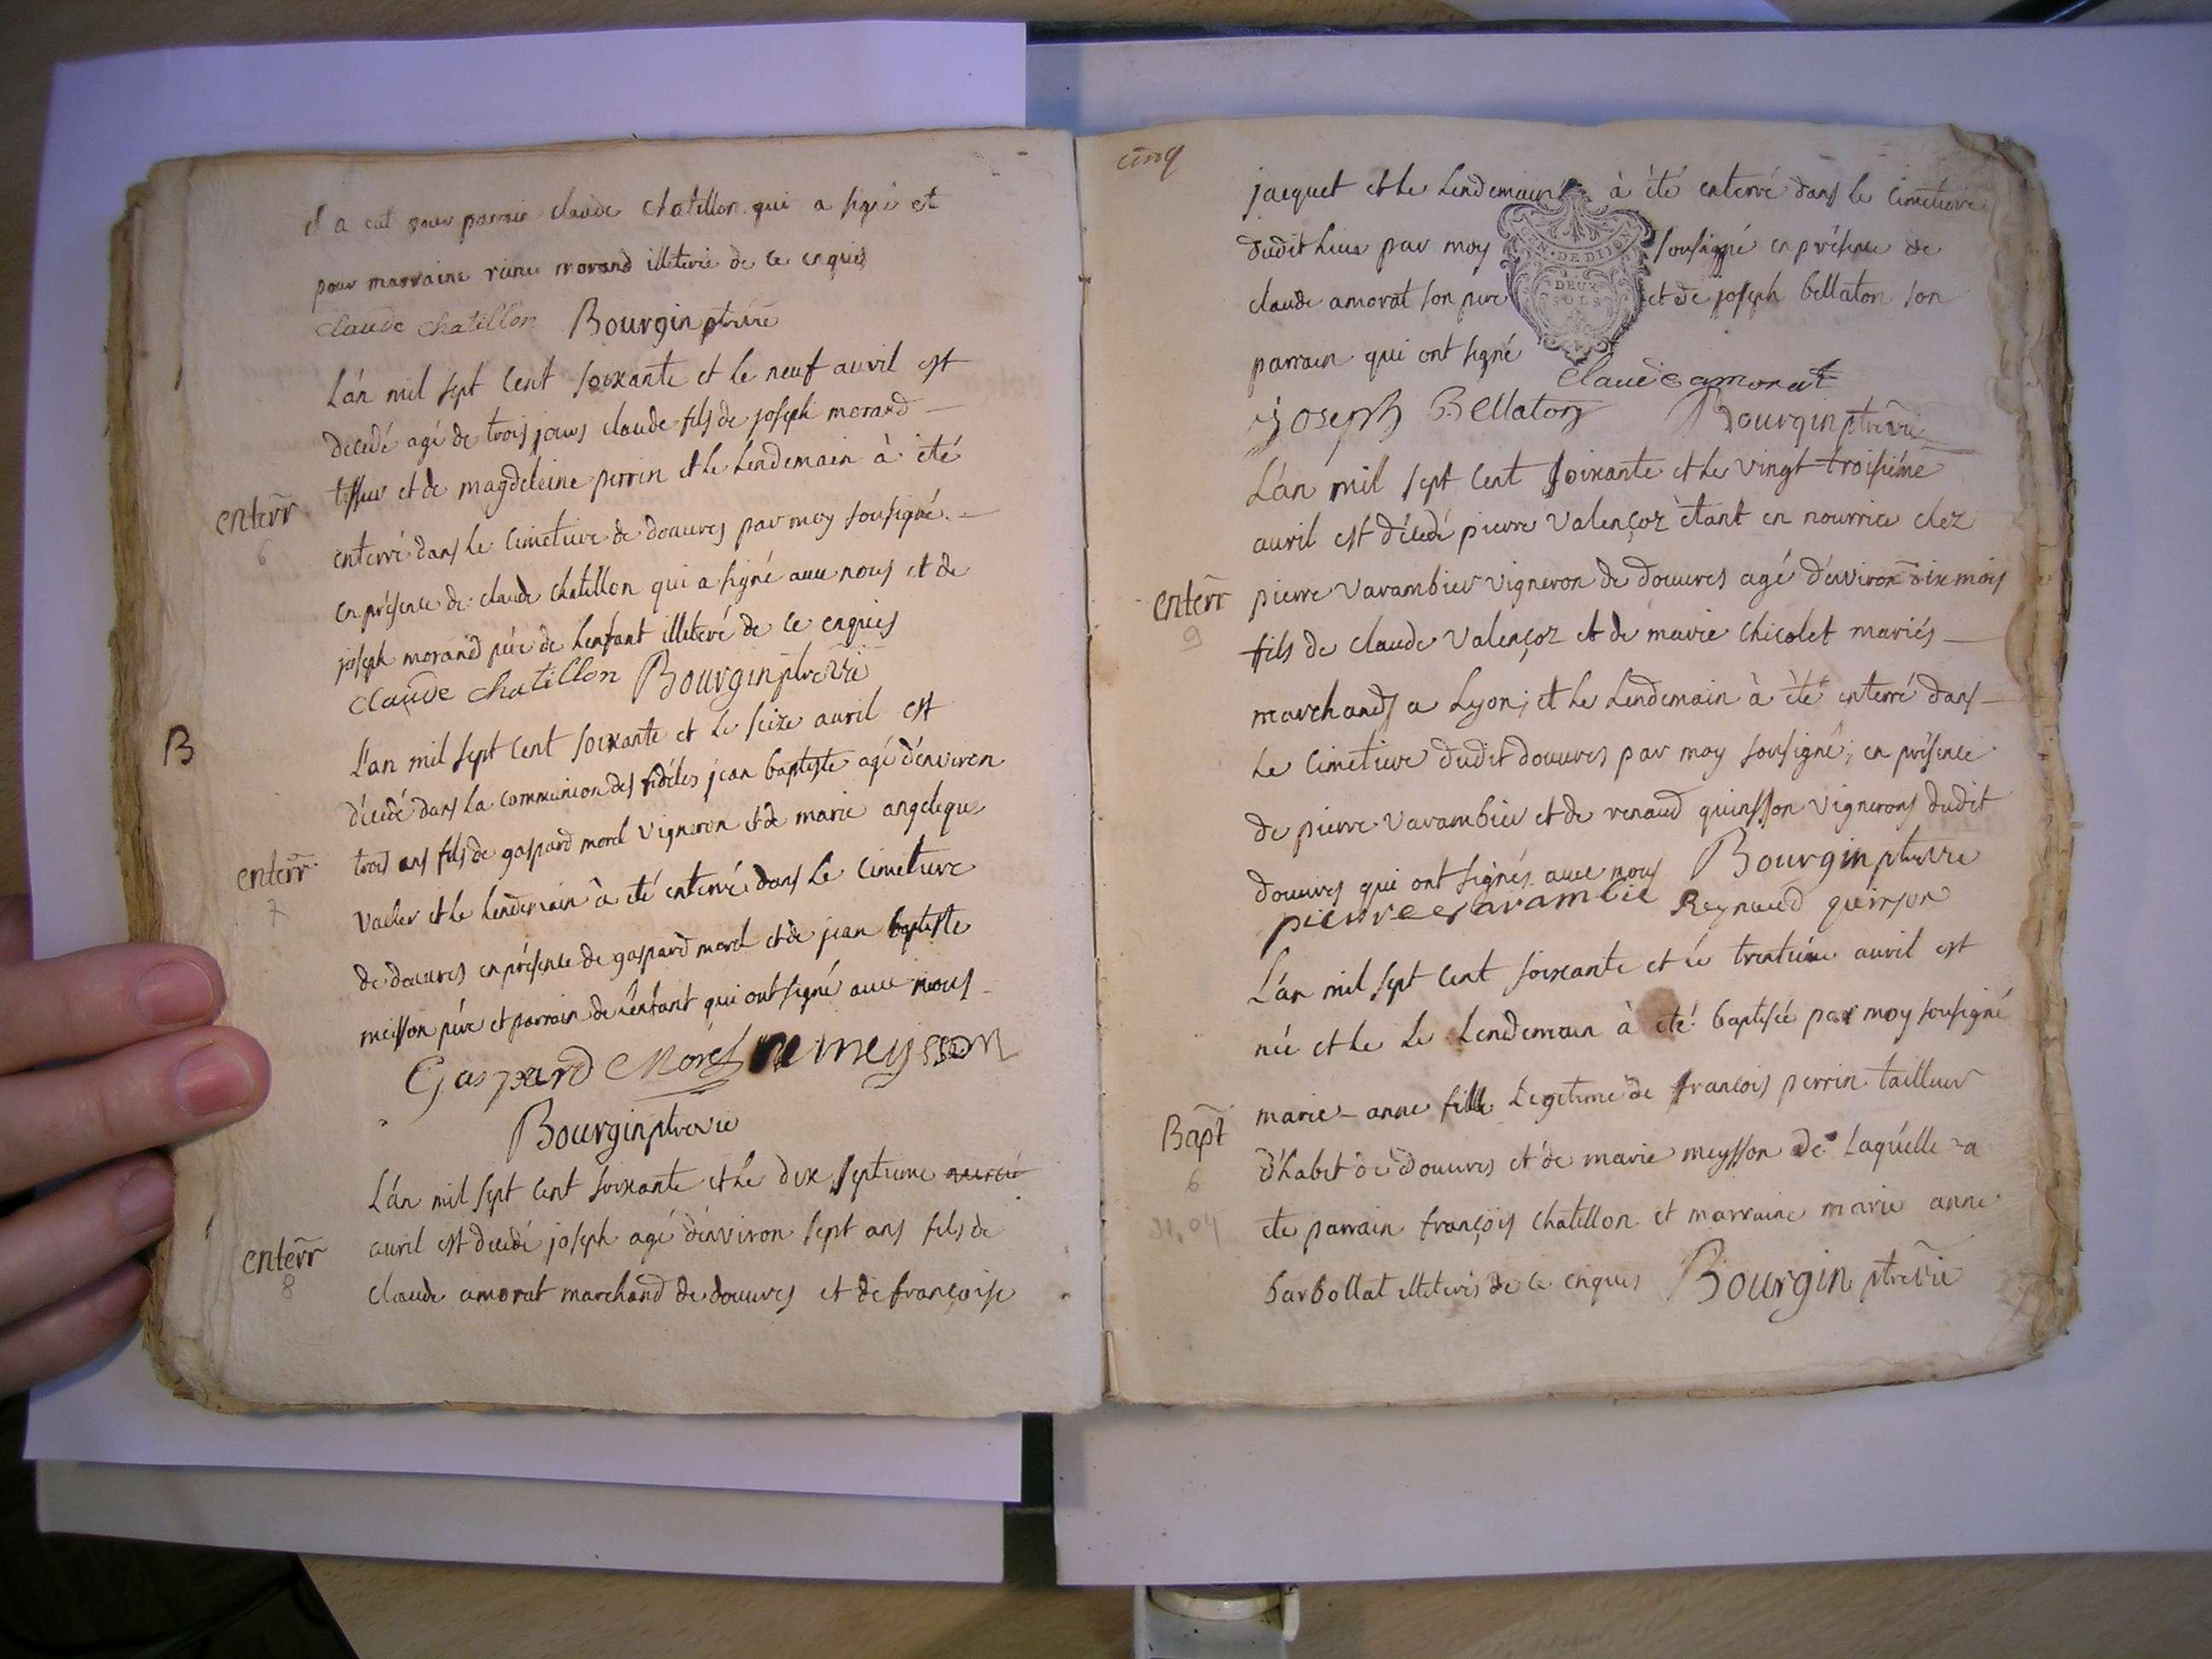 il a eut pour parrain claude chatillon qui a signé et
pour marraine reine morand illeterée de ce enquis
claude chatillon Bourgin ptre vic
L'an mil sept cent soixante et le neuf avril est
decedé agé de trois jours claude fils de joseph morand
tisseur et de magdeleine perrin et le lendemain à été
enterr
6
enterré dans le cimetiere de douvres par moy sousigné
en présence de claude chatillon qui a signé avec nous et de
joseph morand pére de lenfant illeteré de ce enquis
claude chatillon Bourgin ptre vic
B
L'an mil sept cent soixante et le seize avril est
décedé dans la communion des fidéles jean baptiste agé d'environ
trois ans fils de gaspard morel vigneron et de marie angelique
enterr
7
et le lendemain à été enterré dans le cimetiere
de douvres en présence de gaspard morel et de jean baptiste
meisson pére et parrain de lenfant qui ont signé avec nous
Gaspard Morel meysson
Bourgin ptre vic
L'an mil sept cent soixante et le dix septieme
avril est decedé joseph agé d'environ sept ans fils de
enterr
8
claude amorat marchand de douvres et de françoise
cinq
jacquet et le lendemain à été enterré dans le cimetiere
dudit lieu par moy sousigné en présence de
claude amorat son pere et de joseph bellaton son
parrain qui ont signé
GEN. DE DIJON
DEUX
SOLS
claude amorat
joseph Bellaton Bourgin ptre vic
L'an mil sept cent soixante et le vingt troisiéme
avril est décedé pierre Valençoz ètant en nourrice chez
enterr
9
pierre Varambier vigneron de douvres agé d'environ dix mois
fils de claude Valençoz et de marie chicolet mariés
marchands a Lyon; et le lendemain à été enterré dans
le cimetiere dudit douvres par moy sousigné; en présence
de pierre Varambier et de renaud quinsson vignerons dudit
douvres qui ont signés avec nous Bourgin ptre vic
pierre varambie Reynaud quinson
L'an mil sept cent soixante et le trentiéme avril est
née et le le lendemain à été baptisée par moy sousigné
Bapt
6
31.04
marie-anne fille legitime de françois perrin tailleur
d'habit de douvres et de marie meysson de laquelle a
ete parrain françois chatillon et marraine marie anne
barbollat illeterés de ce enquis Bourgin ptre vic